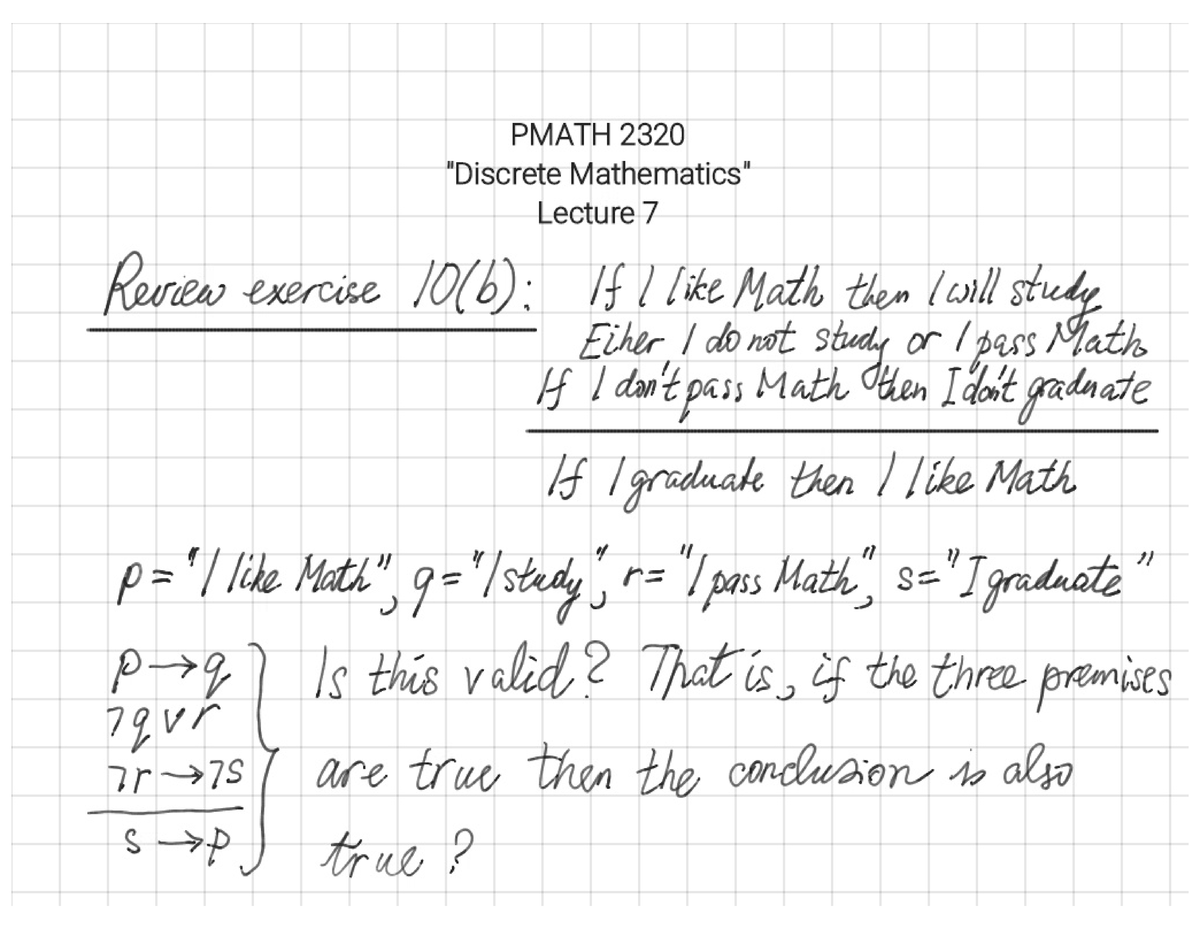 PMATH 2320
"Discrete Mathematics"
Lecture 7
Review exercise 10(b): If I like Math then I will study
Eiher I do not study or I pass Math
If I don't pass Math then I don't graduate
If I graduate then I like Math
p = "I like Math", q = "I study", r = "I pass Math", s = "I graduate"
p → q Is this valid? That is, if the three premises
¬q ∨ r
¬r → ¬s are true then the conclusion is also
s → p true?